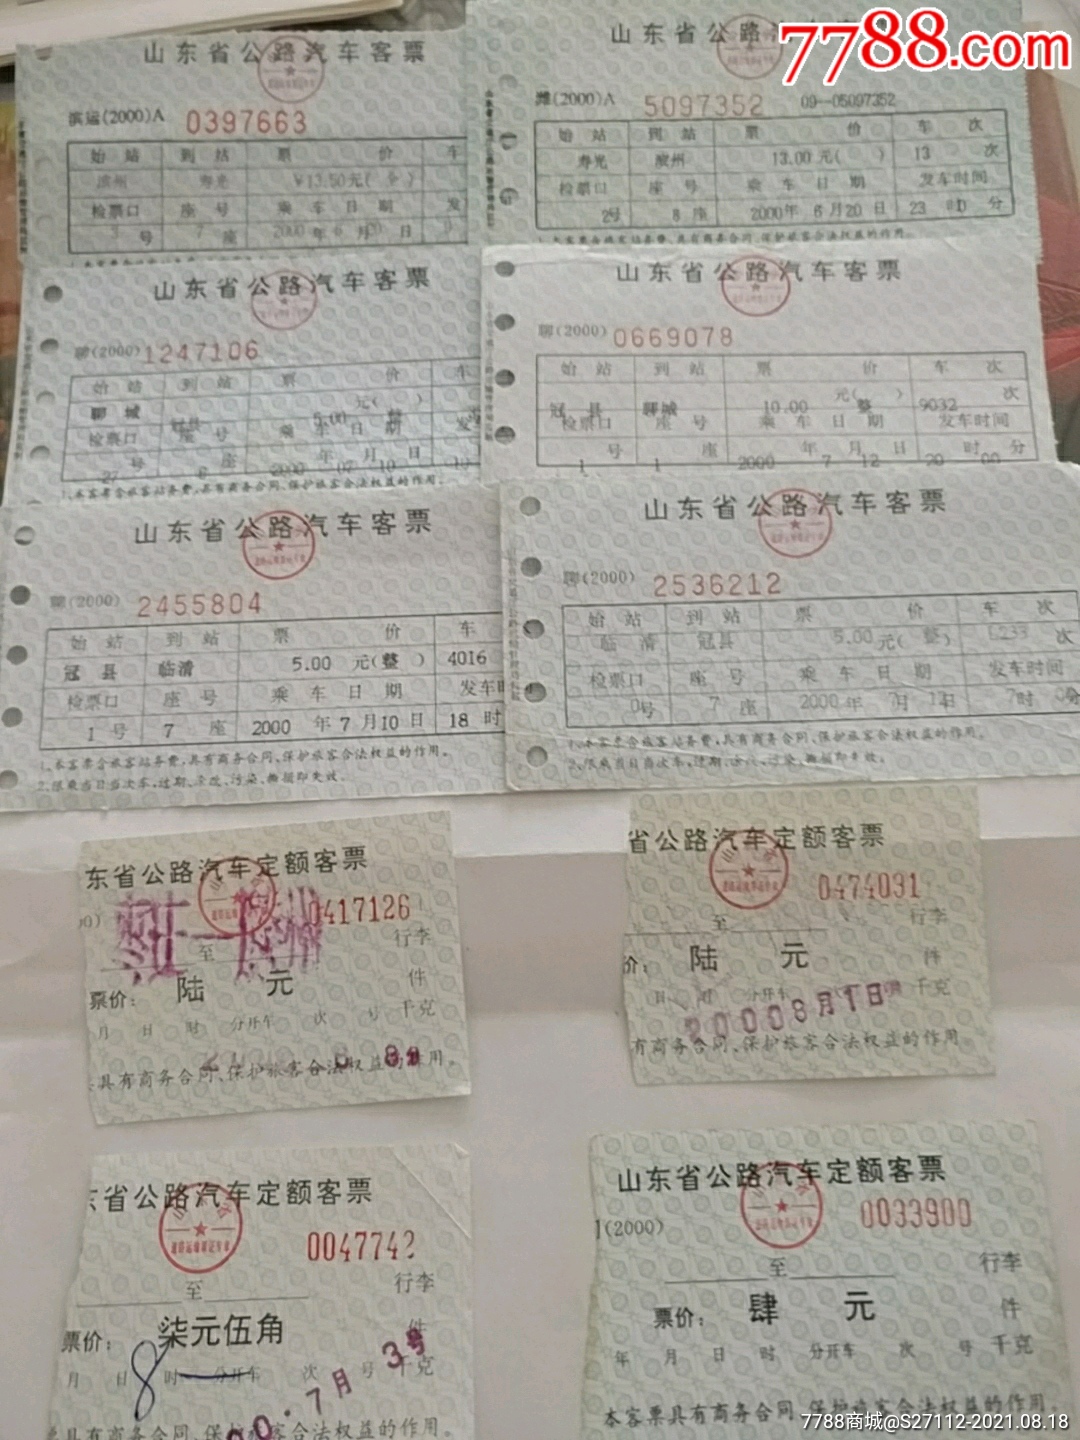 7788.com
山东省公路汽车客票
滨运(2000)A 0397663
始 站 到 站 票 价 车
滨州 寿光 ¥13.50元( 全 )
检票口 座 号 乘 车 日 期 发
3 号 7 座 2000 年 6 月 20 日
山东省公路汽车客票
潍(2000)A 5097352 09—05097352
始 站 到 站 票 价 车 次
寿光 滨州 13.00 元( ) 13 次
检票口 座 号 乘 车 日 期 发车时间
2号 8 座 2000年 6 月20 日 23 时 0 分
1.本客票含旅客站务费,具有商务合同、保护旅客合法权益的作用。
山东省公路汽车客票
聊(2000) 1247106
始 站 到 站 票 价 车
聊 城 冠县 5.00 元( 整 )
检票口 座 号 乘 车 日 期 发
27 号 6 座 2000 年 07 月 10 日
1.本客票含旅客站务费,具有商务合同、保护旅客合法权益的作用。
山东省公路汽车客票
聊(2000) 0669078
始 站 到 站 票 价 车 次
冠 县 聊城 10.00 元( 整 ) 9032 次
检票口 座 号 乘 车 日 期 发车时间
1 号 1 座 2000 年 7 月 12 日 20 时 00 分
山东省公路汽车客票
聊(2000) 2455804
始 站 到 站 票 价 车
冠 县 临清 5.00 元(整 ) 4016
检票口 座 号 乘 车 日 期 发车时
1 号 7 座 2000 年 7 月10 日 18 时
1.本客票含旅客站务费,具有商务合同、保护旅客合法权益的作用。
2.限乘当日当次车,过期、涂改、污染、撕损即失效.
山东省公路汽车客票
聊(2000) 2536212
始 站 到 站 票 价 车 次
临 清 冠县 5.00 元( 整 ) 次
检票口 座 号 乘 车 日 期 发车时间
0号 7 座 2000 年 7 月 日 7时 分
1.本客票含旅客站务费,具有商务合同、保护旅客合法权益的作用。
2.限乘当日当次车,过期、涂改、污染、撕损即失效。
东省公路汽车定额客票
0417126
至 行李
票价: 陆 元 件
月 日 时 分开车 次 号 千克
具有商务合同、保护旅客合法权益的作用。
省公路汽车定额客票
0474031
至 行李
价: 陆 元 件
日 时 分开车 千克
2000 8月1日
有商务合同、保护旅客合法权益的作用。
省公路汽车定额客票
0047742
至 行李
票价: 柒元伍角 件
月 日 8 时 分开车 次 号 千克
00.7月 3号
具有商务合同、保护旅客合法权益的作用.
山东省公路汽车定额客票
(2000) 0033900
至 行李
票价: 肆 元 件
年 月 日 时 分开车 次 号 千克
本客票具有商务合同、保护旅客合法权益的作用。
7788商城@S27112-2021.08.18